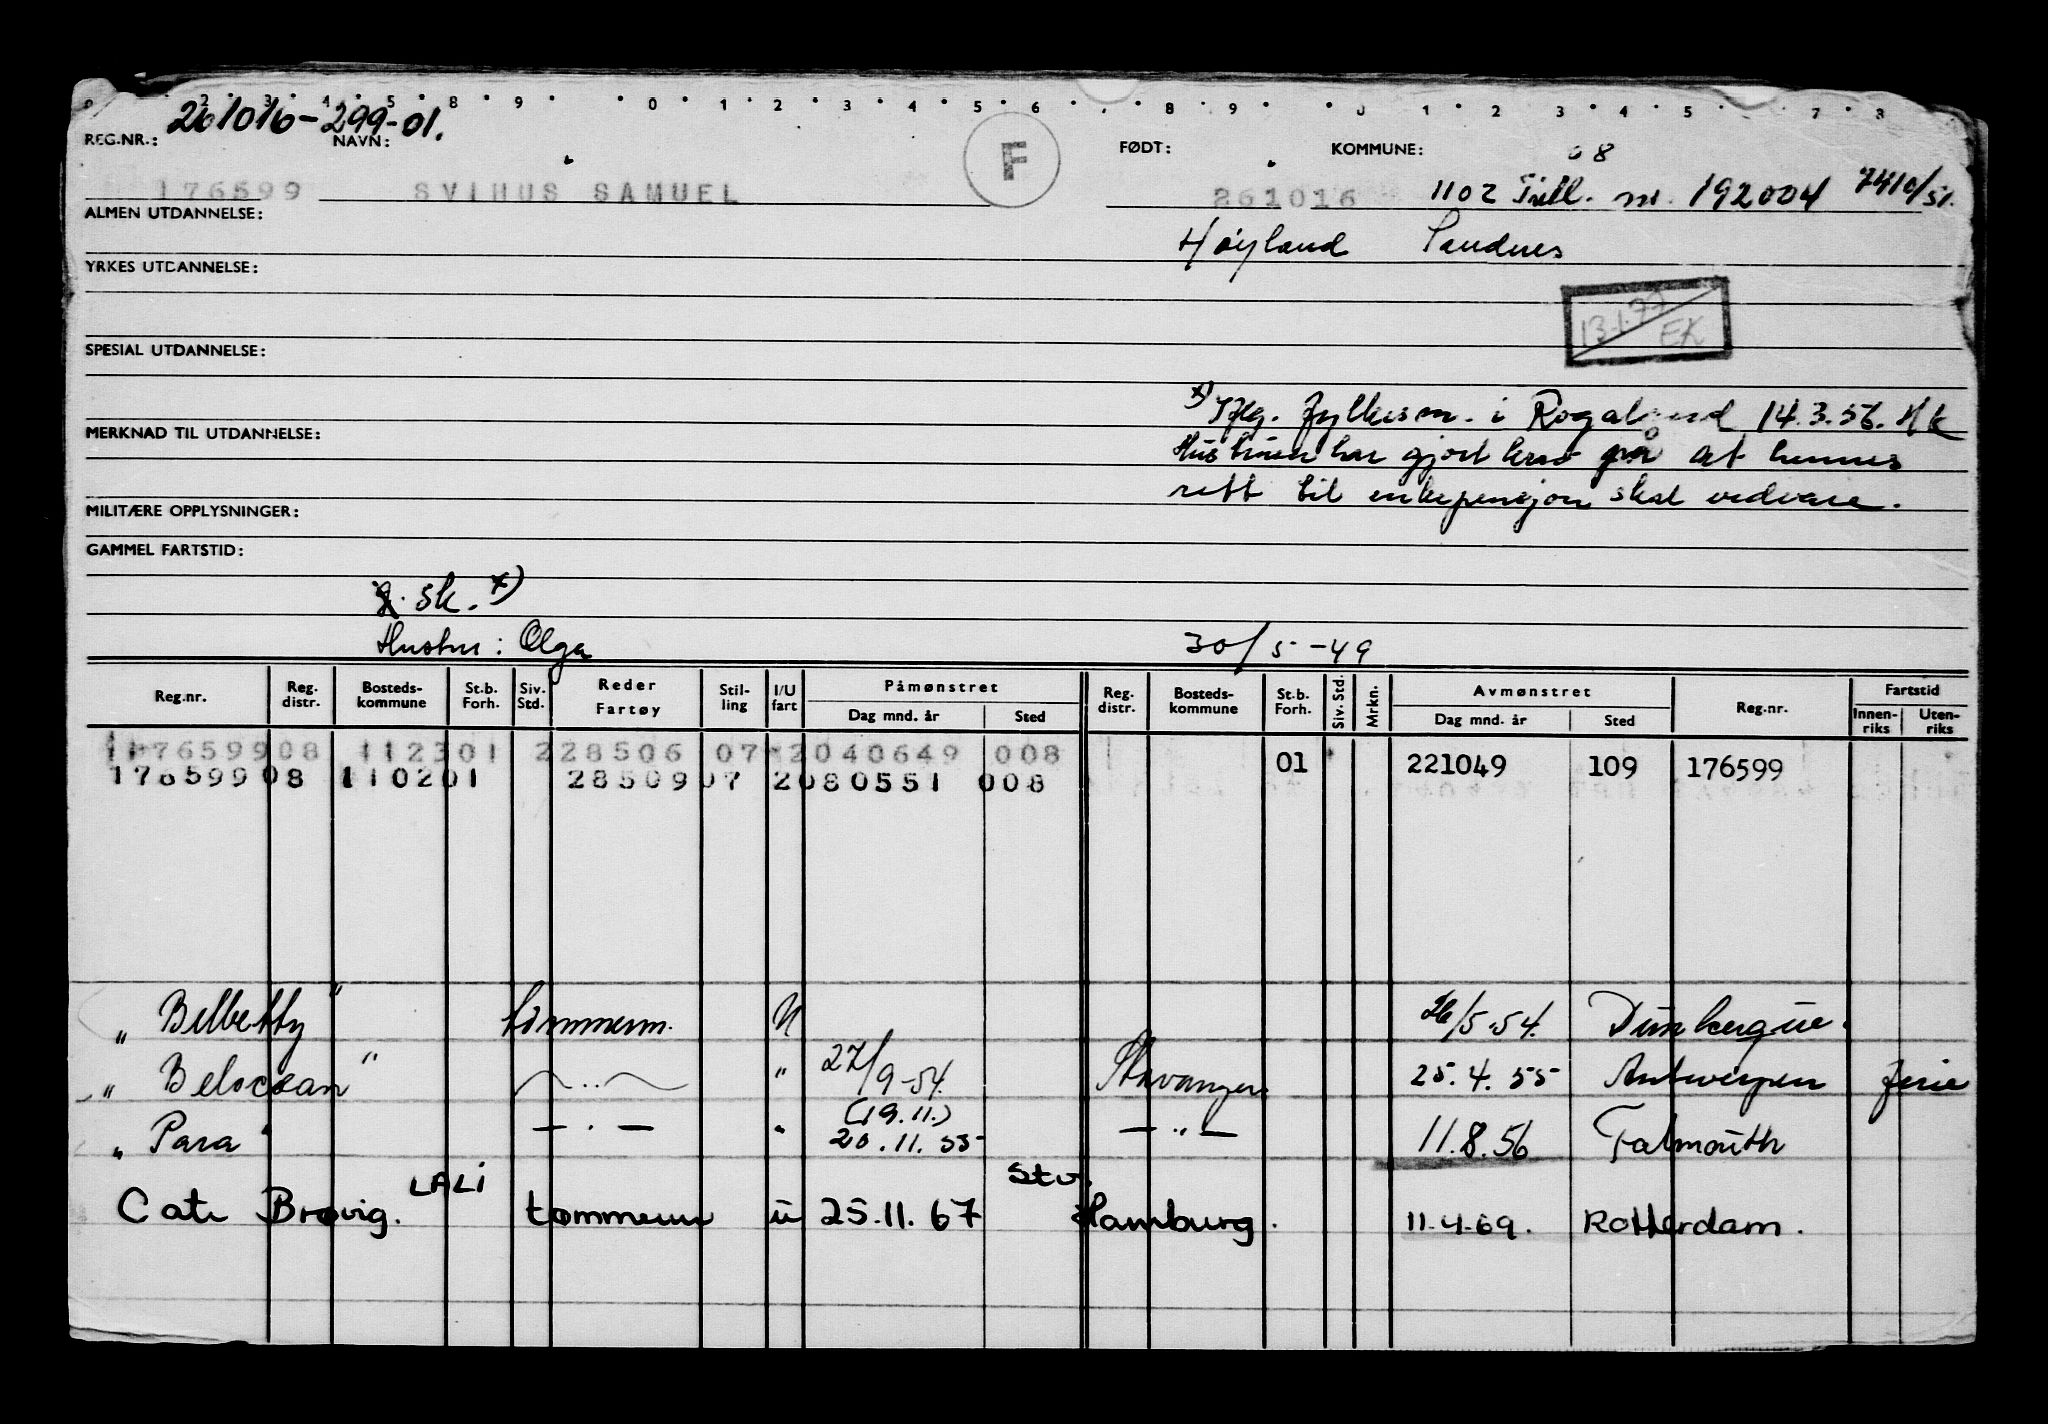 0 2 3 4 5 8 9 0 1 2 3 4 5 6 8 9 0 1 2 3 4 5 7 8
261016-299-01.
REG.NR.: NAVN: F FØDT: KOMMUNE: 08
176599 SVIHUS SAMUEL 261016 1102 nr. 192004 7410/51.
ALMEN UTDANNELSE: Høyland Sandnes
YRKES UTDANNELSE:
13-1-77 EK
SPESIAL UTDANNELSE:
x) Iflg. fylkesm. i Rogaland 14.3.56. Hk
MERKNAD TIL UTDANNELSE:
Hustruen har gjort krav på at hennes
rett til enkepensjon skal vedvare.
MILITÆRE OPPLYSNINGER:
GAMMEL FARTSTID:
g. sk. x)
Hustru: Olga 30/5-49
Reg.nr. Reg. distr. Bosteds- kommune St.b. Forh. Siv. Std. Reder Fartøy Stil- ling I/U fart Påmønstret Dag mnd. år Sted Reg. distr. Bosteds- kommune St.b. Forh. Siv. Std. Mrkn. Avmønstret Dag mnd. år Sted Reg.nr. Fartstid Innen- riks Uten- riks
17659908 112301 228506 07 2040649 008 01 221049 109 176599
17659908 110201 28509 07 2080551 008
" Belbetty " tømmerm. U 26/5-54. Dunkerque.
" Belocean " — " — " 27/9-54. Stavanger 25.4.55 Antwerpen ferie
(19.11.)
" Para " — " — " 20.11.55 — " — 11.8.56 Falmouth
LALI Stv.
Cate Brøvig. tømmerm u 25.11.67 Hamburg. 11-4-69. Rotterdam.